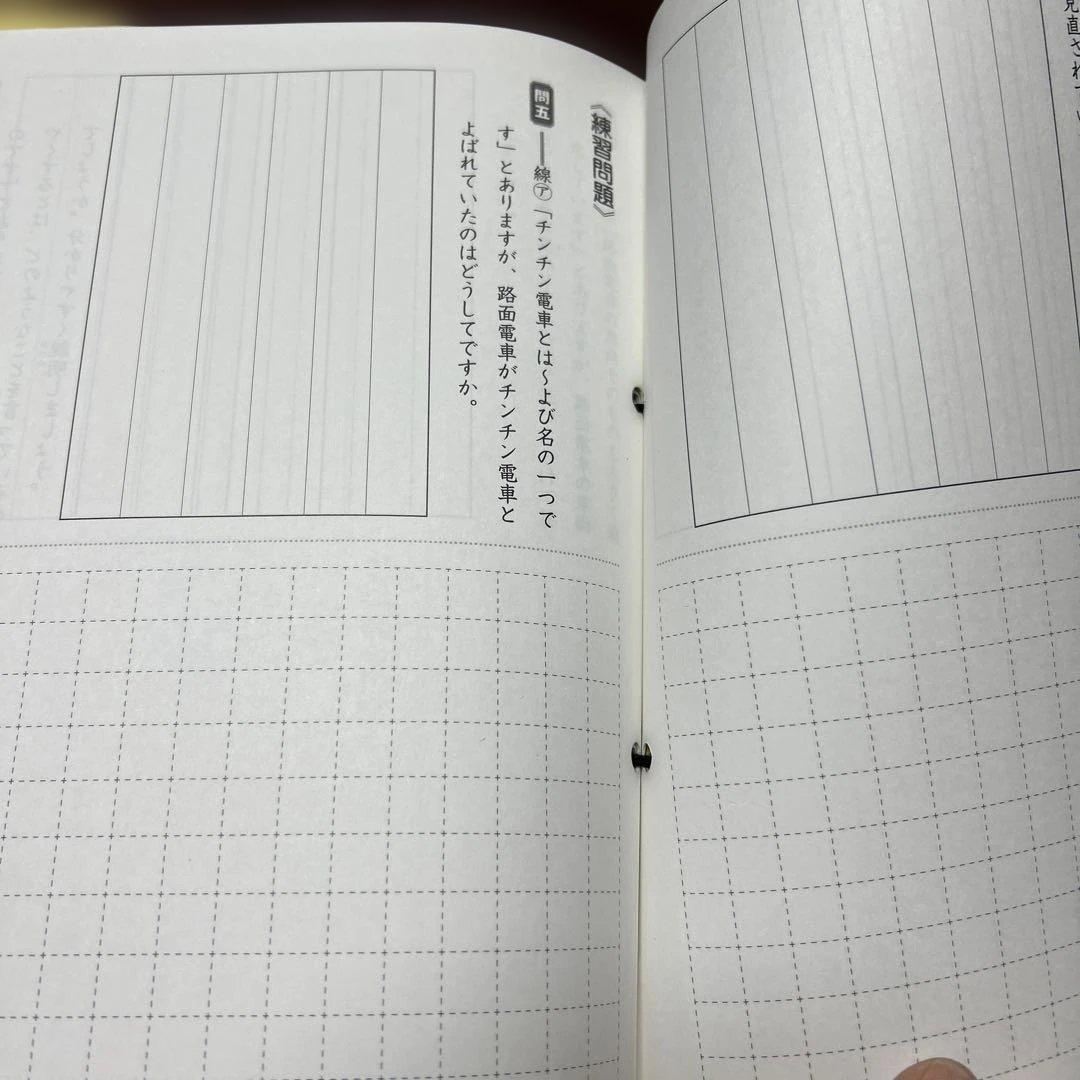 見直されてい
《練習問題》
問五 ――線㋐「チンチン電車とは～よび名の一つで
す」とありますが、路面電車がチンチン電車と
よばれていたのはどうしてですか。